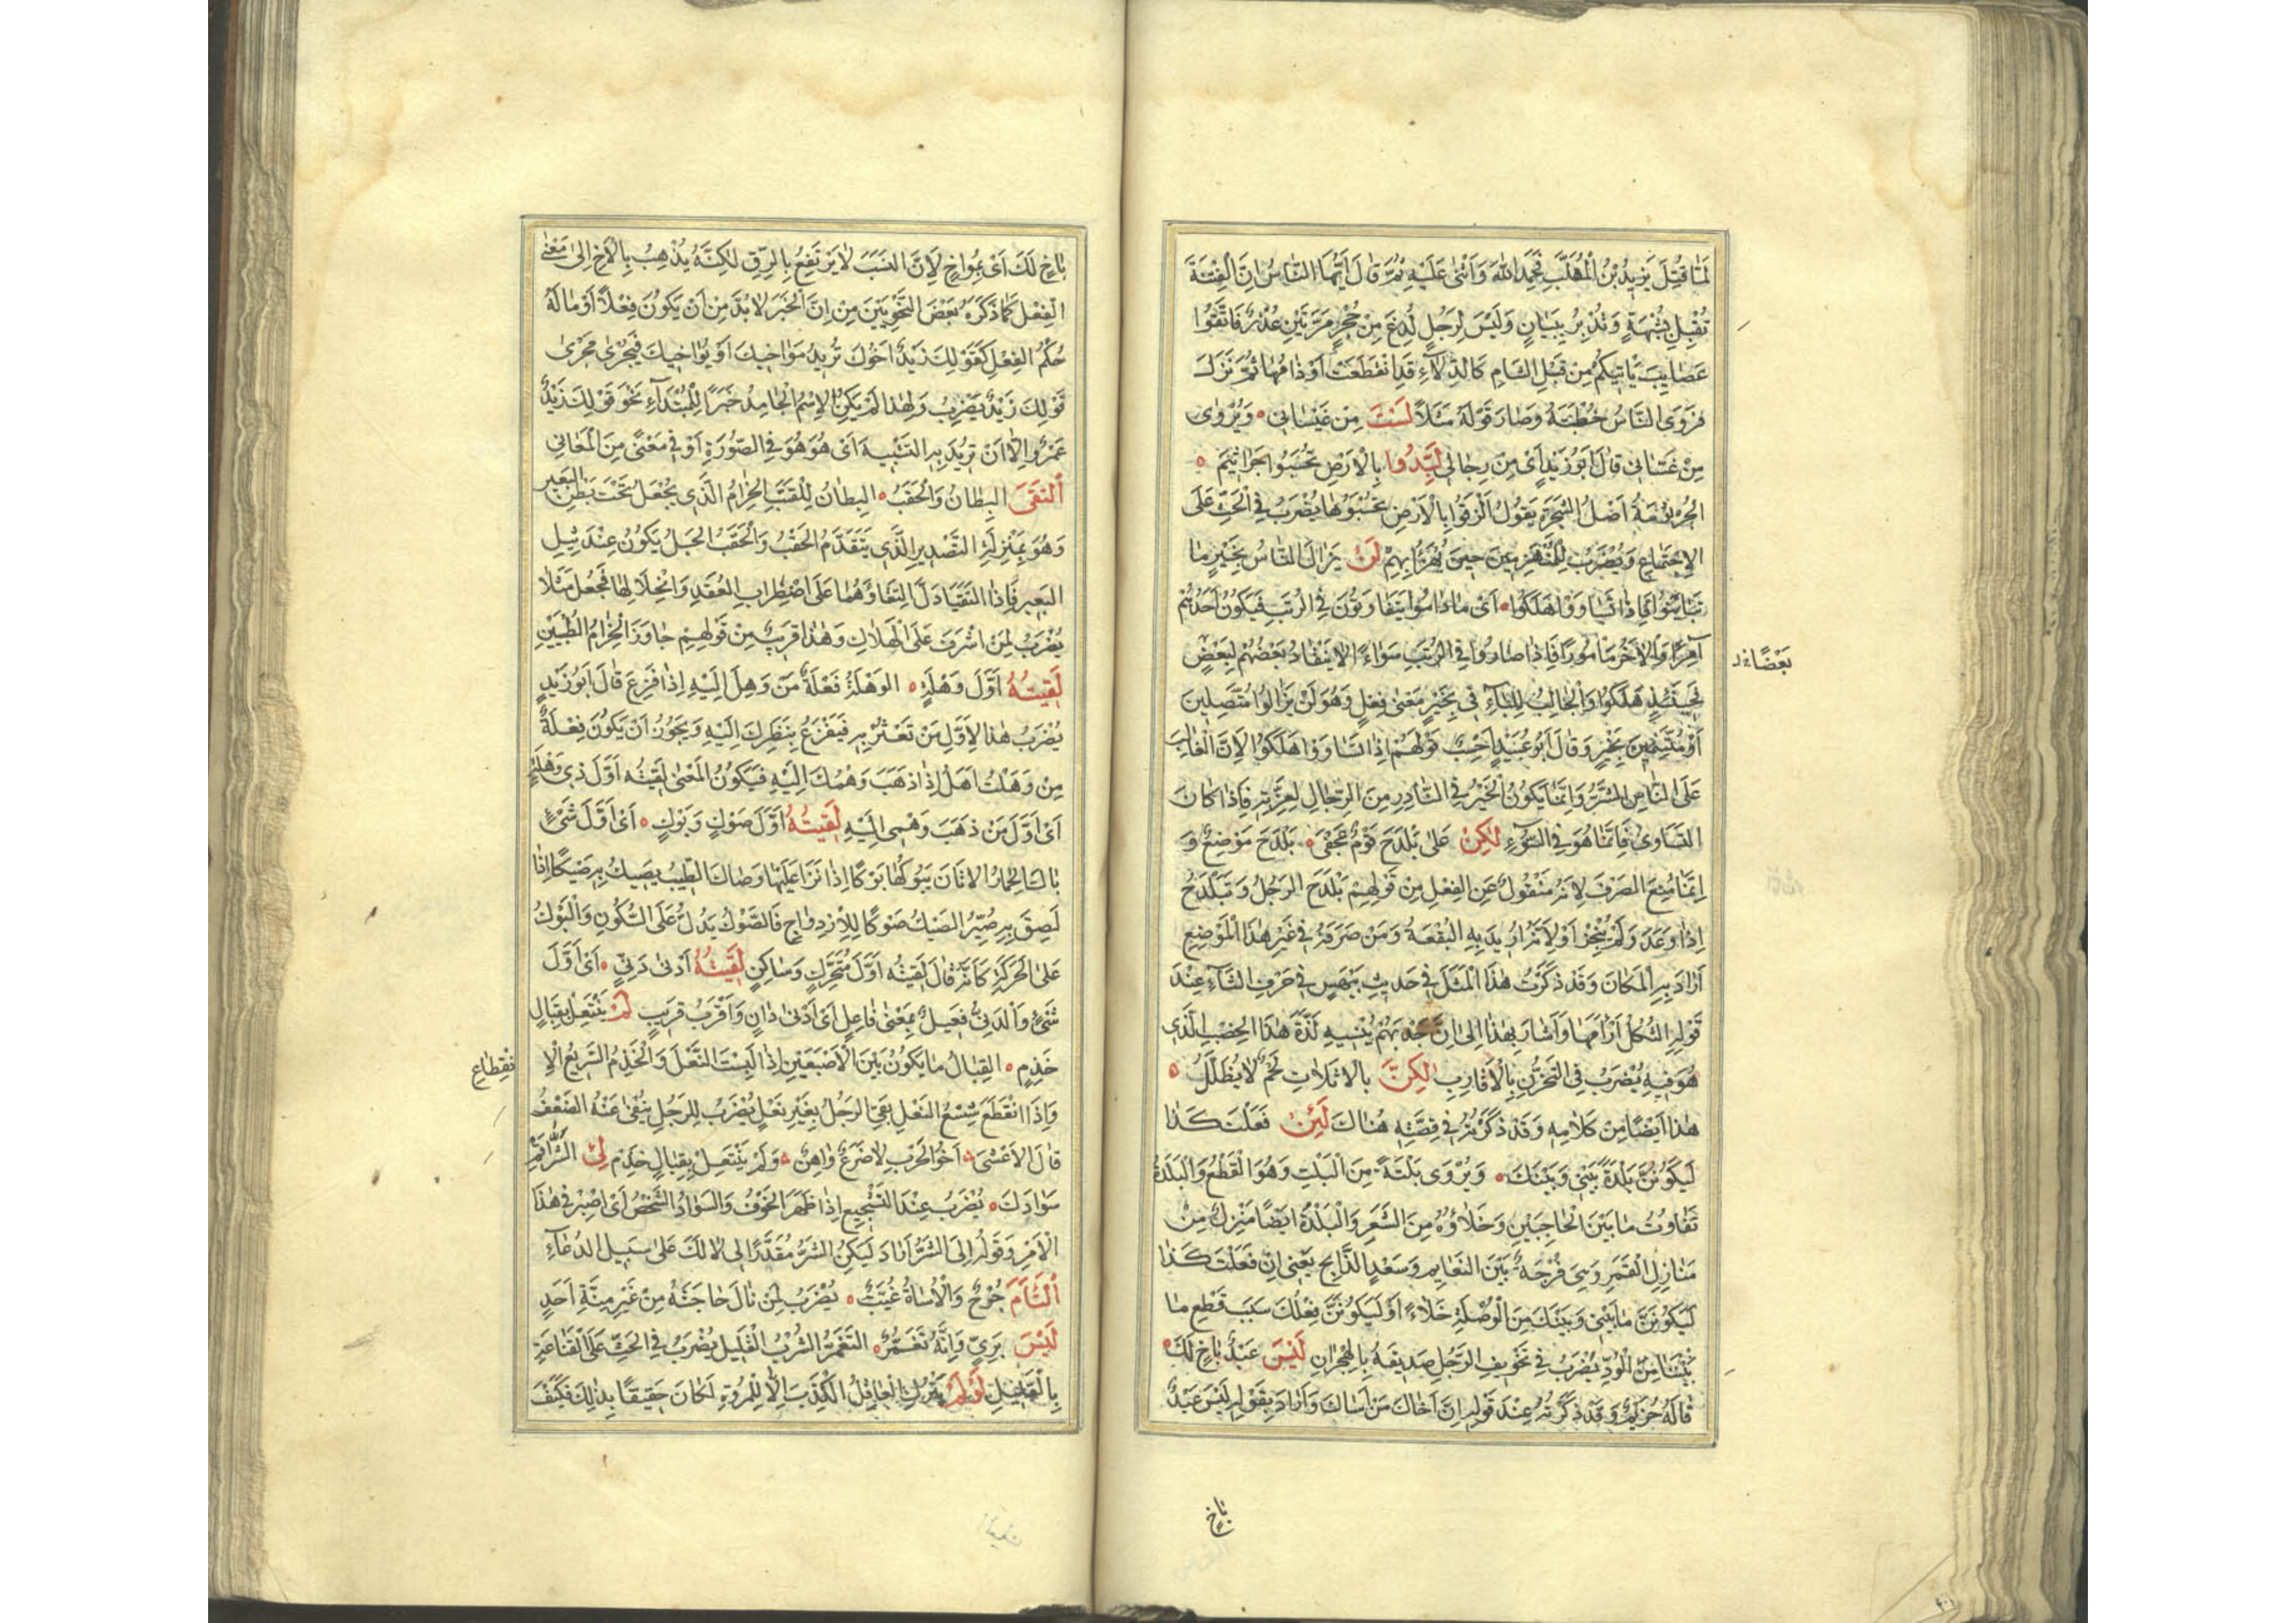 لَمَّا قُتِلَ يَزِيدُ بْنُ الْمُهَلَّبِ فَحَمِدَ اللّٰهَ وَاَثْنٰى عَلَيْهِ ثُمَّ قَالَ اَيُّهَا النَّاسُ اِنَّ الْفِتْنَةَ
تُقْبِلُ بِشُبْهَةٍ وَتُدْبِرُ بِبَيَانٍ وَلَيْسَ لِرَجُلٍ لُدِغَ مِنْ جُحْرٍ مَرَّتَيْنِ عُذْرٌ فَاتَّقُوا
عَصَايِبَ يَاْتِيكُمْ مِنْ قِبَلِ الشَّامِ كَالدِّلَاءِ قَدِ انْقَطَعَتْ اَوْذَامُهَا ثُمَّ نَزَلَ
فَرَوَى النَّاسُ خُطْبَتَهُ وَصَارَ قَوْلُهُ مَثَلًا لَسْتَ مِنْ غَيْسَانِي وَيُرْوٰى
مِنْ غَسَّانِي قَالَ اَبُو زَيْدٍ اَىْ مِنْ رِجَالِي لَبِّدُوا بِالْاَرْضِ تُحْسَبُوا جَرَاثِيمَ
الْجُرْثُمَةُ اَصْلُ الشَّجَرَةِ يَقُولُ الْزَقُوا بِالْاَرْضِ تَحْسَبُوهَا يُضْرَبُ فِي الْحَثِّ عَلَى
الْاِجْتِمَاعِ وَيُضْرَبُ لِلْمُنْهَزِمِينَ حِينَ يُهْزَاُ بِهِمْ لَنْ يَزَالَ النَّاسُ بِخَيْرٍ مَا
تَبَايَنُوا فَاِذَا تَسَاوَوْا هَلَكُوا اَىْ مَا دَامُوا يَتَفَاوَتُونَ فِي الرُّتَبِ فَيَكُونُ اَحَدُهُمْ
آمِرًا وَالْاٰخَرُ مَاْمُورًا فَاِذَا صَارُوا فِي الرُّتَبِ سَوَاءً لَا يَنْقَادُ بَعْضُهُمْ لِبَعْضٍ
بَعْضًا
فَحِينَئِذٍ هَلَكُوا وَالْجَالِبُ لِلْبَاءِ فِي بِخَيْرٍ مَعْنٰى فِعْلٍ وَهُوَ لَنْ يَزَالُوا مُتَّصِلِينَ
اَوْ مُتَّسِمِينَ بِخَيْرٍ وَقَالَ اَبُو عُبَيْدٍ اَحْسِبُ قَوْلَهُمْ اِذَا تَسَاوَوْا هَلَكُوا لِاَنَّ الْغَالِبَ
عَلَى النَّاسِ الشَّرُّ وَاِنَّمَا يَكُونُ الْخَيْرُ فِي النَّادِرِ مِنَ الرِّجَالِ لِعِزَّتِهِ فَاِذَا كَانَ
التَّسَاوِى فَاِنَّمَا هُوَ فِي السُّوْءِ لٰكِنْ عَلٰى بَلْدَحَ قَوْمٌ عَجْفٰى بَلْدَحُ مَوْضِعٌ وَ
اِنَّمَا مُنِعَ الصَّرْفَ لِاَنَّهُ مَنْقُولٌ عَنِ الْفِعْلِ مِنْ قَوْلِهِمْ بَلْدَحَ الرَّجُلُ وَتَبَلْدَحَ
اِذَا وَعَدَ وَلَمْ يُنْجِزْ اَوْ لِاَنَّهُ اُرِيدَ بِهِ الْبُقْعَةُ وَمَنْ صَرَفَهُ فِي غَيْرِ هٰذَا الْمَوْضِعِ
اَرَادَ بِهِ الْمَكَانَ وَقَدْ ذَكَرْتُ هٰذَا الْمَثَلَ فِي حَدِيثِ بَيْهَسٍ فِي حَرْفِ الثَّاءِ عِنْدَ
قَوْلِهِ الثُّكْلُ اَرْاَمَهَا وَاَشَارَ بِهٰذَا اِلٰى اَنَّ بِهِمْ يُنْسِيهِ لَذَّةَ هٰذَا الْخِصْبِ الَّذِى
هُوَ فِيهِ يُضْرَبُ فِي التَّحَزُّنِ بِالْاَقَارِبِ لٰكِنْ بِالْاَثَلَاتِ لَحْمٌ لَا يُظَلَّلُ
هٰذَا اَيْضًا مِنْ كَلَامِهِ وَقَدْ ذَكَرْتُهُ فِي قِصَّتِهِ هُنَاكَ لَئِنْ فَعَلْتَ كَذَا
لَيَكُونَنَّ بَلْدَةٌ بَيْنِي وَبَيْنَكَ وَيُرْوٰى بَلْتَةٌ مِنَ الْبَلْتِ وَهُوَ الْقَطْعُ وَالْبَلْدَةُ
تَفَاوُتُ مَا بَيْنَ الْحَاجِبَيْنِ وَخَلَاؤُهُ مِنَ الشَّعَرِ وَالْبَلْدَةُ اَيْضًا مَنْزِلٌ مِنْ
مَنَازِلِ الْقَمَرِ وَهِيَ فُرْجَةٌ بَيْنَ النَّعَايِمِ وَسَعْدِ الذَّابِحِ يَعْنِي اِنْ فَعَلْتَ كَذَا
لَيَكُونَنَّ مَا بَيْنِي وَبَيْنَكَ مِنَ الْوُصْلَةِ خَلَاءً اَوْ لَيَكُونَنَّ فِعْلُكَ سَبَبَ قَطْعِ مَا
بَيْنَنَا مِنَ الْوُدِّ يُضْرَبُ فِي تَخْوِيفِ الرَّجُلِ صَدِيقَهُ بِالْهِجْرَانِ لَيْسَ عَبْدٌ بِاَخٍ لَكَ
قَالَهُ خُزَيْمٌ وَقَدْ ذَكَرْتُهُ عِنْدَ قَوْلِهِ اِنَّ اَخَاكَ مَنْ اٰسَاكَ وَاَرَادَ بِقَوْلِهِ لَيْسَ عَبْدٌ
بِاَخٍ
بِاَخٍ لَكَ اَىْ بِمُوَاخٍ لِاَنَّ النَّسَبَ لَا يَرْتَفِعُ بِالرِّقِّ لٰكِنَّهُ يُذْهِبُ بِالْاَخِ اِلٰى مَعْنٰى
الْفِعْلِ كَمَا ذَكَرَهُ بَعْضُ النَّحْوِيِّينَ مِنْ اِنَّ الْخَبَرَ لَا بُدَّ مِنْ اَنْ يَكُونَ فِعْلًا اَوْ مَالَهُ
حُكْمُ الْفِعْلِ كَقَوْلِكَ زَيْدٌ اَخُوكَ تُرِيدُ مُوَاخِيكَ اَوْ يُوَاخِيكَ فَيَجْرِى مَجْرٰى
قَوْلِكَ زَيْدٌ يَضْرِبُ وَلِهٰذَا لَمْ يَكُنِ الْاِسْمُ الْجَامِدُ خَبَرًا لِلْمُبْتَدَاءِ نَحْوَ قَوْلِكَ زَيْدٌ
عَمْرٌو اِلَّا اَنْ تُرِيدَ بِهِ التَّشْبِيهَ اَىْ هُوَ هُوَ فِي الصُّورَةِ اَوْ فِي مَعْنًى مِنَ الْمَعَانِي
اِلْتَقَى الْبِطَانُ وَالْحَقَبُ الْبِطَانُ لِلْقَتَبِ الْحِزَامُ الَّذِى يُجْعَلُ تَحْتَ بَطْنِ الْبَعِيرِ
وَهُوَ بِمَنْزِلَةِ التَّصْدِيرِ الَّذِى يَتَقَدَّمُ الْحَقَبَ وَالْحَقَبُ الْحَبْلُ يَكُونُ عِنْدَ ثِيلِ
الْبَعِيرِ فَاِذَا الْتَقَيَا دَلَّ الْتِقَاؤُهُمَا عَلَى اضْطِرَابِ الْعُقَدِ وَانْحِلَالِهَا فَجُعِلَ مَثَلًا
يُضْرَبُ لِمَنْ اَشْرَفَ عَلَى الْهَلَاكِ وَهٰذَا قَرِيبٌ مِنْ قَوْلِهِمْ جَاوَزَ الْحِزَامُ الطُّبْيَيْنِ
لَقِيتُهُ اَوَّلَ وَهْلَةٍ الْوَهْلَةُ فَعْلَةٌ مَنْ وَهِلَ اِلَيْهِ اِذَا فَزِعَ قَالَ اَبُو زَيْدٍ
يُضْرَبُ هٰذَا لِاَوَّلِ مَنْ تَعْثُرُ بِهِ فَيَفْزَعُ بِنَظَرِكَ اِلَيْهِ وَيَجُوزُ اَنْ يَكُونَ فَعْلَةٌ
مِنْ وَهَلْتُ اَهَلُ اِذَا ذَهَبَ وَهْمُكَ اِلَيْهِ فَيَكُونُ الْمَعْنٰى لَقِيتُهُ اَوَّلَ ذِى وَهْلَةٍ
اَىْ اَوَّلَ مَنْ ذَهَبَ وَهْمِى اِلَيْهِ لَقِيتُهُ اَوَّلَ صَوْكٍ وَبَوْكٍ اَىْ اَوَّلَ شَىْءٍ
بَاكَ الْحِمَارُ الْاَتَانَ يَبُوكُهَا بَوْكًا اِذَا نَزَا عَلَيْهَا وَصَاكَ الطِّيبُ يَصِيكُ بِهِ صَيْكًا اِذَا
لَصِقَ بِهِ صُيِّرَ الصَّيْكُ صَوْكًا لِلْاِزْدِوَاجِ فَالصَّوْكُ يَدُلُّ عَلَى السُّكُونِ وَالْبَوْكُ
عَلَى الْحَرَكَةِ كَاَنَّهُ قَالَ لَقِيتُهُ اَوَّلَ مُتَحَرِّكٍ وَسَاكِنٍ لَقِيتُهُ اَدْنٰى دَنِيٍّ اَىْ اَوَّلَ
شَىْءٍ وَالدَّنِيُّ فَعِيلٌ بِمَعْنٰى فَاعِلٍ اَىْ اَدْنٰى دَانٍ وَاَقْرَبَ قَرِيبٍ لَمْ يَنْتَعِلْ بِقِبَالٍ
خَذِمٍ الْقِبَالُ مَا يَكُونُ بَيْنَ الْاِصْبَعَيْنِ اِذَا لَبِسْتَ النَّعْلَ وَالْخَذِمُ السَّرِيعُ الْاِ
نْقِطَاعِ
وَاِذَا انْقَطَعَ شِسْعُ النَّعْلِ بَقِىَ الرَّجُلُ بِغَيْرِ نَعْلٍ يُضْرَبُ لِلرَّجُلِ يُنْفٰى عَنْهُ الضَّعْفُ
قَالَ الْاَعْشٰى اَخُو الْحَرْبِ لَا ضَرَعٌ وَاهِنٌ وَلَمْ يَنْتَعِلْ بِقِبَالٍ خَذِمْ لِى الشَّرُّ اَقِمْ
سَوَادَكَ يُضْرَبُ عِنْدَ التَّشْجِيعِ اِذَا ظَهَرَ الْخَوْفُ وَالسَّوَادُ الشَّخْصُ اَىْ اِصْبِرْ فِي هٰذَا
الْاَمْرِ وَقَوْلُهُ لِىَ الشَّرُّ اَرَادَ لِيَكُنِ الشَّرُّ مُقَدَّرًا لِى لَا لَكَ عَلٰى سَبِيلِ الدُّعَاءِ
اِلْتَاَمَ جُرْحٌ وَالْاُسَاةُ غُيَّبٌ يُضْرَبُ لِمَنْ نَالَ حَاجَتَهُ مِنْ غَيْرِ مِنَّةِ اَحَدٍ
لَيْسَ بِرِيٍّ وَاِنَّهُ تَغَمُّرٌ التَّغَمُّرُ الشُّرْبُ الْقَلِيلُ يُضْرَبُ فِي الْحَثِّ عَلَى الْقَنَاعَةِ
بِالْقَلِيلِ لَوْ لَمْ يَتْرُكِ الْعَاقِلُ الْكَذِبَ اِلَّا لِلْمُرُوَّةِ لَكَانَ حَقِيقًا بِذٰلِكَ فَكَيْفَ